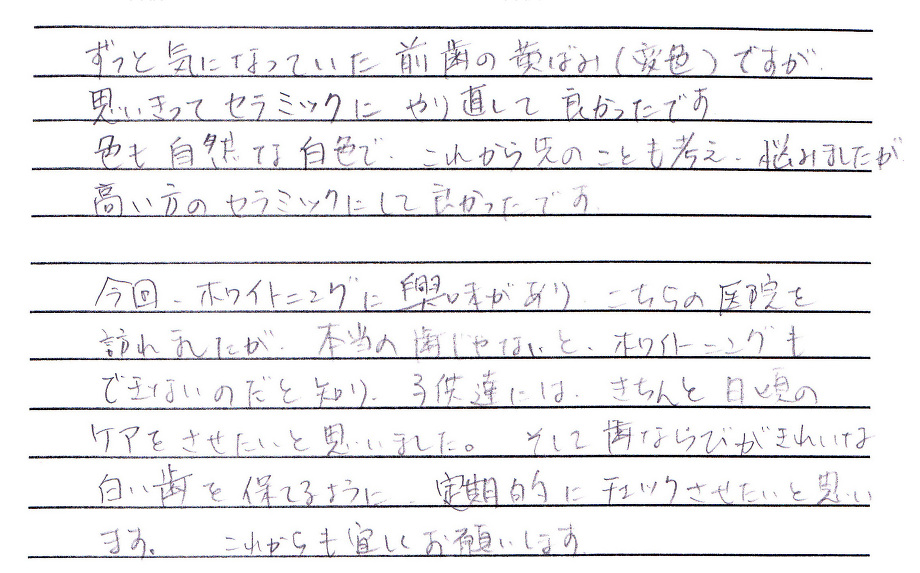 ずっと気になっていた前歯の黄ばみ(変色)ですが、
思いきってセラミックにやり直して良かったです
色も自然な白色で、これから先のことも考え、悩みましたが
高い方のセラミックにして良かったです。
今回、ホワイトニングに興味があり、こちらの医院を
訪れましたが、本当の歯じゃないと、ホワイトニングも
できないのだと知り、子供達には、きちんと日頃の
ケアをさせたいと思いました。 そして歯ならびがきれいな
白い歯を保てるように、定期的にチェックさせたいと思い
ます。 これからも宜しくお願いします。